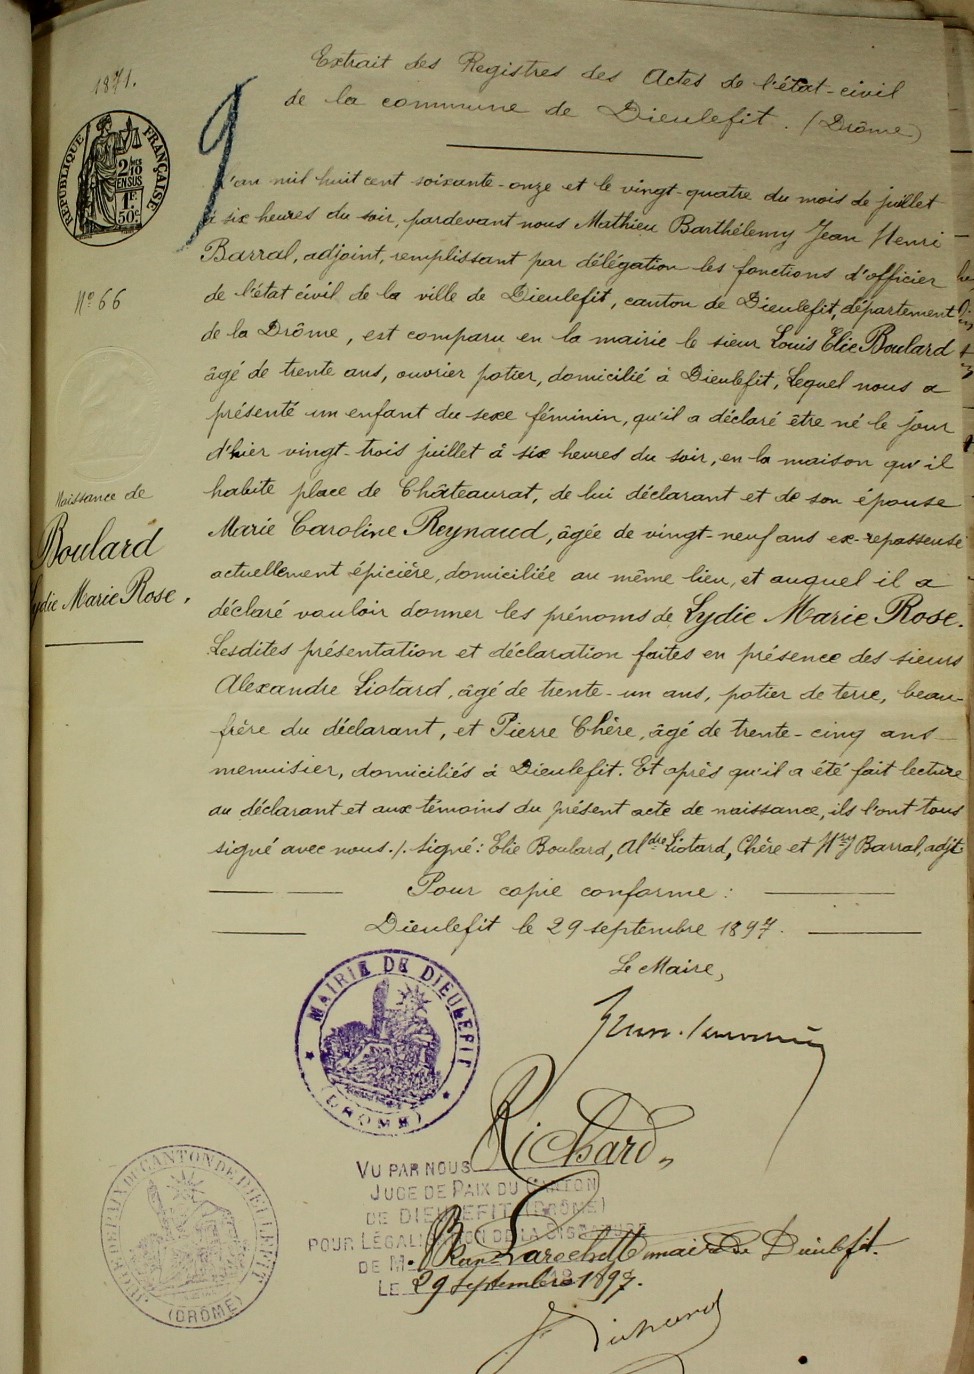 1871.
Extrait des Registres des Actes de l'état-civil
de la commune de Dieulefit. (Drôme)
9
RÉPUBLIQUE FRANÇAISE
2/10 EN SUS
1F. 50c
L'an mil huit cent soixante-onze et le vingt-quatre du mois de juillet
à six heures du soir, pardevant nous Mathieu Barthélemy Jean Henri
Barral, adjoint, remplissant par délégation les fonctions d'officier
N° 66
de l'état civil de la ville de Dieulefit, canton de Dieulefit, département
de la Drôme, est comparu en la mairie le sieur Louis Elie Boulard
âgé de trente ans, ouvrier potier, domicilié à Dieulefit, Lequel nous a
présenté un enfant du sexe féminin, qu'il a déclaré être né le jour
d'hier vingt-trois juillet à six heures du soir, en la maison qu'il
habite place de Châteaurat, de lui déclarant et de son épouse
Naissance de
Boulard
Lydie Marie Rose.
Marie Caroline Reynaud, âgée de vingt-neuf ans ex-repasseuse
actuellement épicière, domiciliée au même lieu, et auquel il a
déclaré vouloir donner les prénoms de Lydie Marie Rose.
Lesdites présentation et déclaration faites en présence des sieurs
Alexandre Liotard, âgé de trente-un ans, potier de terre, beau-
frère du déclarant, et Pierre Chère, âgé de trente-cinq ans
menuisier, domiciliés à Dieulefit. Et après qu'il a été fait lecture
au déclarant et aux témoins du présent acte de naissance, ils l'ont tous
signé avec nous./. signé: Elie Boulard, Aldre Liotard, Chère et Hry Barral, adjt
Pour copie conforme:
Dieulefit le 29 septembre 1897.
Le Maire,
MAIRIE DE DIEULEFIT
(DRÔME)
Richard
VU PAR NOUS
JUGE DE PAIX DU CANTON
DE DIEULEFIT (DRÔME)
POUR LÉGALISATION DE LA SIGNATURE
DE M. maire de Dieulefit.
LE 29 septembre 1897.
JUGE DE PAIX DU CANTON DE DIEULEFIT
(DRÔME)
Richard